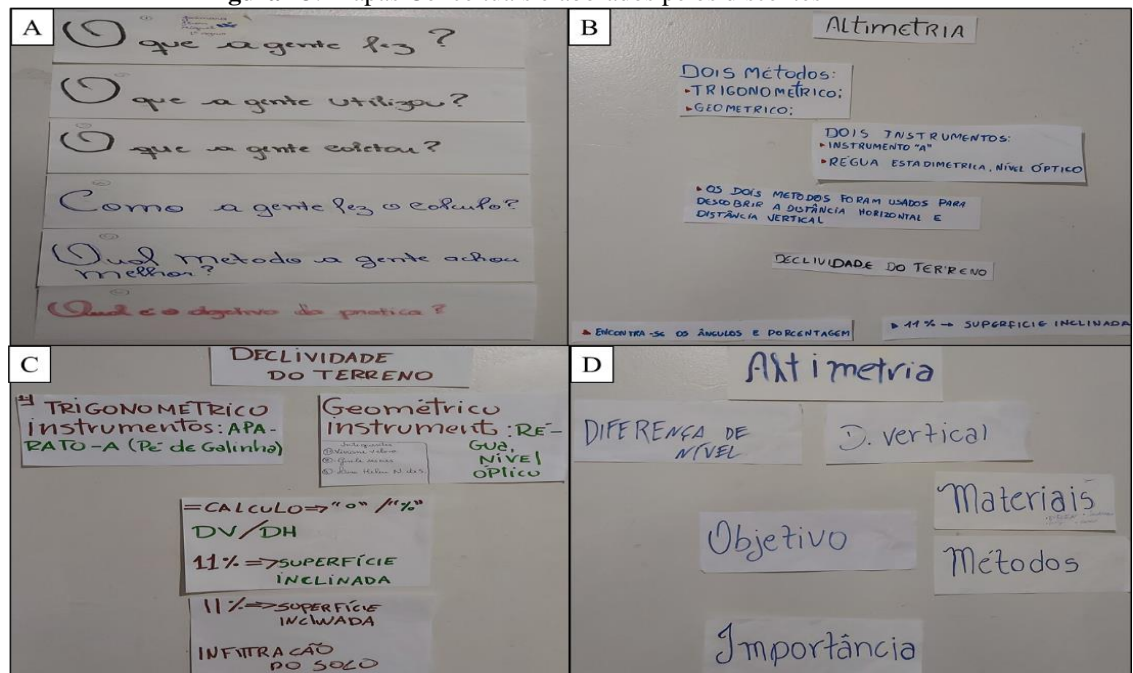 A
O que a gente fez?
O que a gente utilizou?
O que a gente coletou?
Como a gente fez o calculo?
Qual metodo a gente achou
melhor?
Qual é o objetivo da pratica?
B
ALTIMETRIA
DOIS MÉTODOS:
TRIGONOMÉTRICO;
GEOMETRICO;
DOIS INSTRUMENTOS:
INSTRUMENTO "A"
RÉGUA ESTADIMETRICA, NÍVEL ÓPTICO
OS DOIS METODOS FORAM USADOS PARA
DESCOBRIR A DISTÂNCIA HORIZONTAL E
DISTÂNCIA VERTICAL
DECLIVIDADE DO TERRENO
ENCONTRA-SE OS ÂNGULOS E PORCENTAGEM
11% → SUPERFICIE INCLINADA
C
DECLIVIDADE
DO TERRENO
TRIGONOMÉTRICO
instrumentos: APA-
RATO-A (Pé de Galinha)
Geométrico
instrument: RÉ-
GUA,
NÍVEl
ÓPtico
=CALCULO=> "°" /"%"
DV/DH
11% => SUPERFÍCIE
INCLINADA
11% => SUPERFÍCIE
INCLINADA
INFILTRACÃO
DO SOLO
D
Altimetria
DIFERENÇA DE
NÍVEL
D. vertical
Materiais
Objetivo
Métodos
Importância